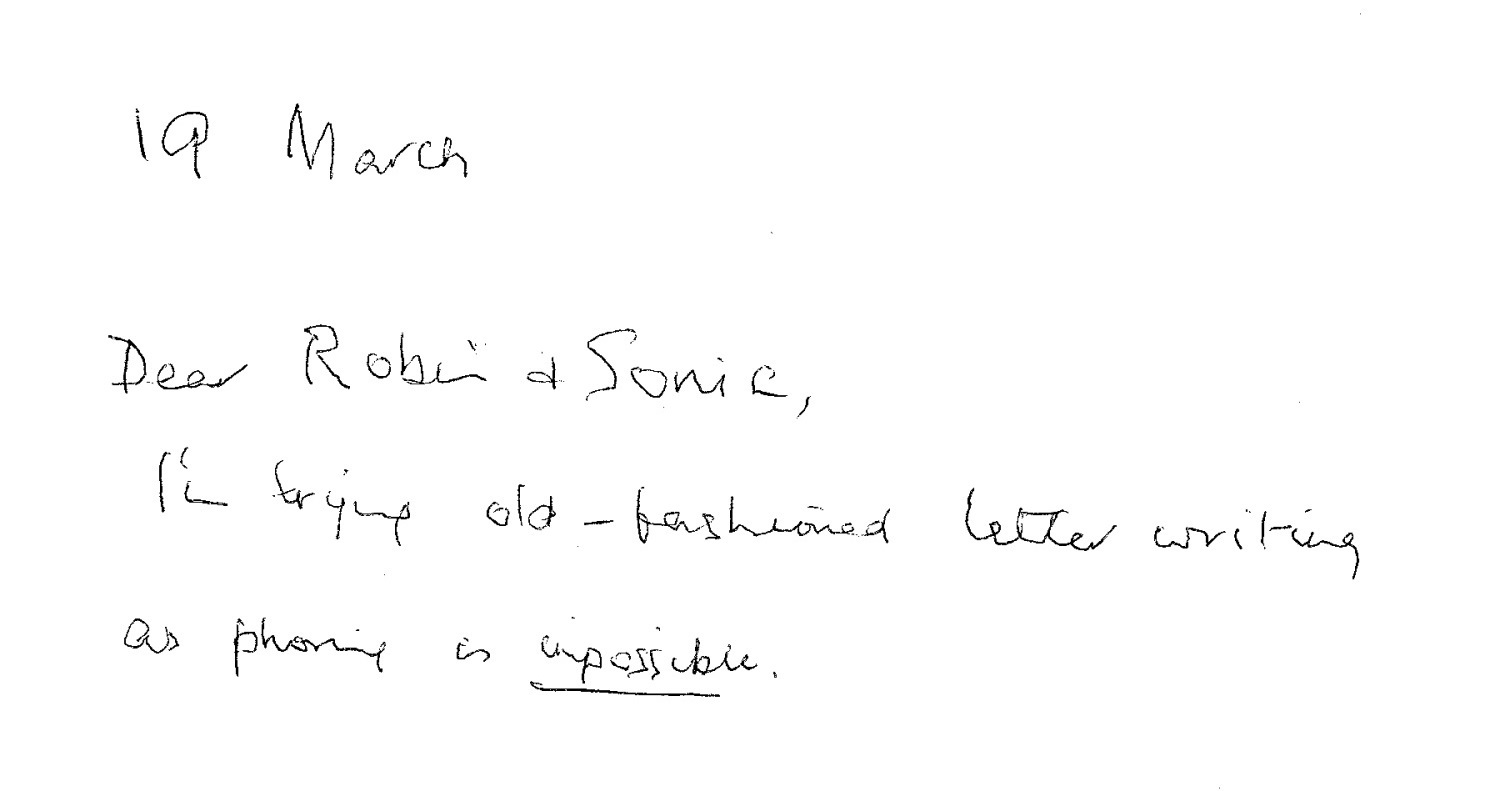 19 March
Dear Robin & Sonia,
I'm trying old-fashioned letter writing
as phoning is impossible.